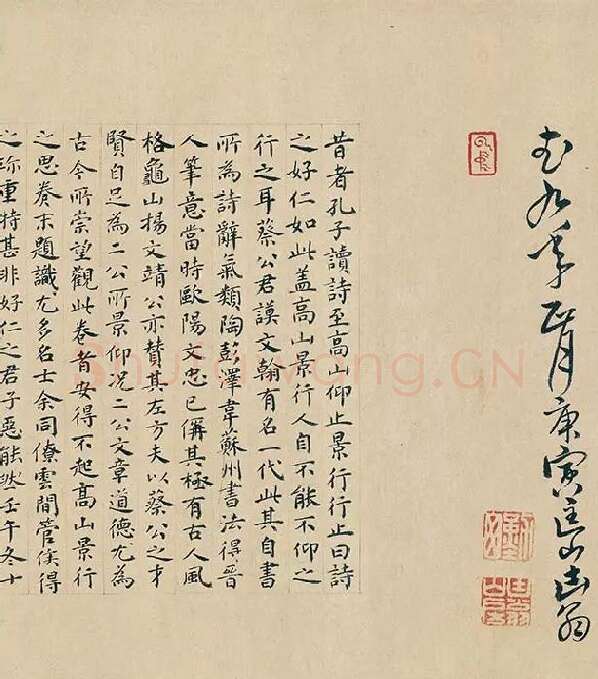 武九年正月庚寅匡山翁
昔者孔子讀詩至高山仰止景行行止曰詩
之好仁如此盖高山景行人自不能不仰之
行之耳蔡公君謨文翰有名一代此其自書
所為詩辭氣類陶彭澤韋蘇州書法得晉
人筆意當時歐陽文忠已偁其極有古人風
格龜山揚文靖公亦賛其左方夫以蔡公之才
賢自足為二公所景仰况二公文章道德尤為
古今所崇望觀此卷者安得不起高山景行
之思卷末題識尤多名士余同僚雲間管侯得
之珎重特甚非好仁之君子惡能然壬午冬十
Shufawang.CN